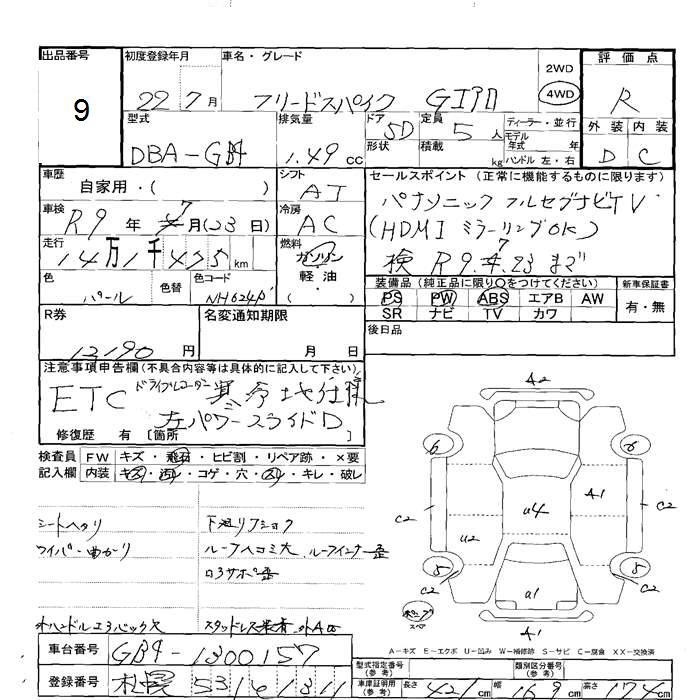 出品番号 9
初度登録年月 22 7月
車名・グレード フリードスパイク GIエアロ
2WD 4WD
評価点 R
外装 内装
D C
型式 DBA-GB4
排気量 1.49cc
ドア 5D
形状
定員 5人
積載 kg
ディーラー・並行
モデル年式 年
ハンドル 左・右
車歴 自家用・( )
シフト AT
セールスポイント(正常に機能するものに限ります)
パナソニック フルセグナビTV
(HDMI ミラーリングOK)
検 R9.7.23まで
車検 R9年 7月(23日)
冷房 AC
走行 14万1千475km
燃料 ガソリン
軽油
・( )
色 パール
色替
色コード NH624P
装備品(純正品に限り○をつけてください)
PS PW ABS エアB AW
SR ナビ TV カワ
新車保証書
有・無
R券 12190円
名変通知期限 月 日
後日品
注意事項申告欄(不具合内容等は具体的に記入して下さい)
ETC ドライブレコーダー 寒冷地仕様
左パワースライドD
修復歴 有 〔箇所
検査員記入欄
FW キズ・飛石・ヒビ割・リペア跡・×要
内装 キズ・汚れ・コゲ・穴・スレ・キレ・破し
シートヘタリ
ワイパー曲がり
下廻りサビ
ルーフヘコミ大 ルーフインナー歪
ロアサポ歪
スタッドレス装着
A2
6 6
A1
C2 C2
U4
U2
5 5
C2 C2
U1
スペア
A1
A-キズ E-エクボ U-凹み W-補修跡 S-サビ C-腐食 XX-交換済
車台番号 GB4-1300157
登録番号 札幌 531
型式指定番号(参考)
類別区分番号(参考)
車庫証明用(参考) 長さ 421cm 幅 169cm 高さ 174cm